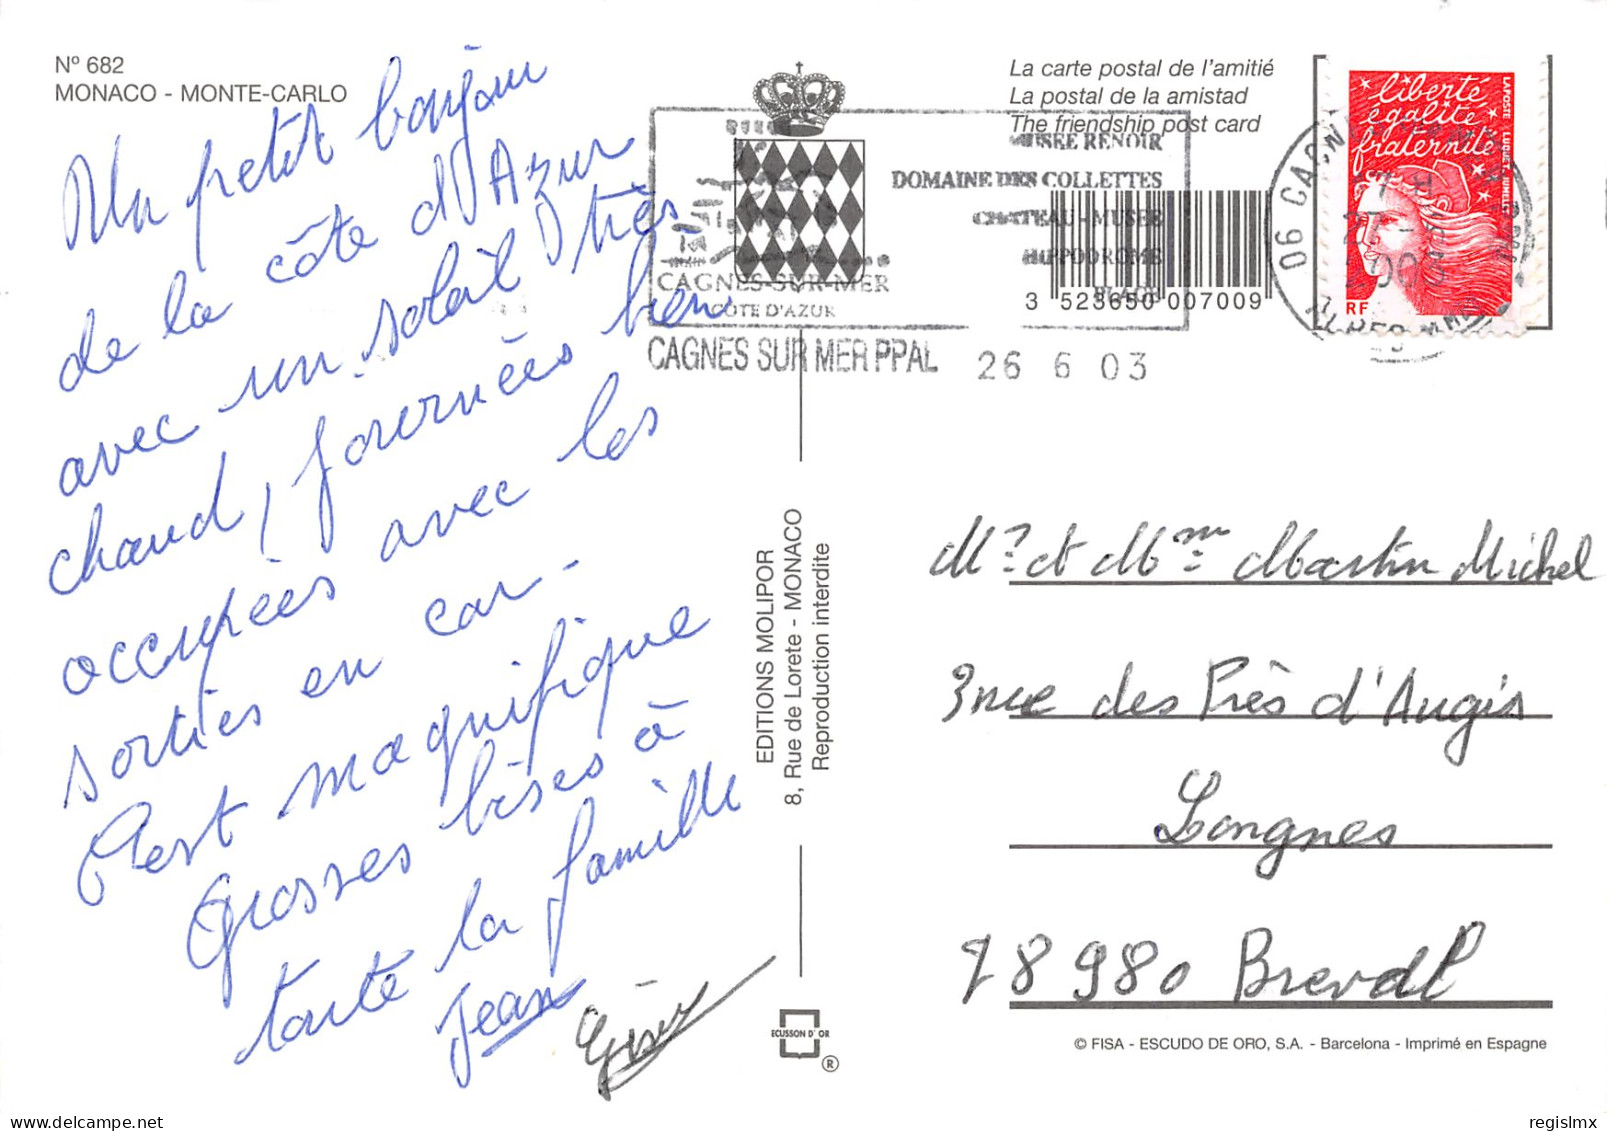 N° 682
MONACO - MONTE-CARLO
Un petit bonjour
de la côte d'Azur
avec un soleil très
chaud, journées bien
occupées avec les
sorties en car.
C'est magnifique
Grosses bises à
toute la famille
Jean
La carte postal de l'amitié
La postal de la amistad
The friendship post card
MUSEE RENOIR
DOMAINE DES COLLETTES
CHATEAU-MUSEE
HIPPODROME
PLAGE
CAGNES-SUR-MER
COTE D'AZUR
CAGNES SUR MER PPAL 26 6 03
3 523650 007009
liberté
égalité
fraternité
RF
LA POSTE LUQUET JUMELET
EDITIONS MOLIPOR
8, Rue de Lorete - MONACO
Reproduction interdite
ECUSSON D'OR
®
Mr et Mme Martin Michel
3 rue des Près d'Augis
Longnes
78980 Breval
© FISA - ESCUDO DE ORO, S.A. - Barcelona - Imprimé en Espagne
regislmx